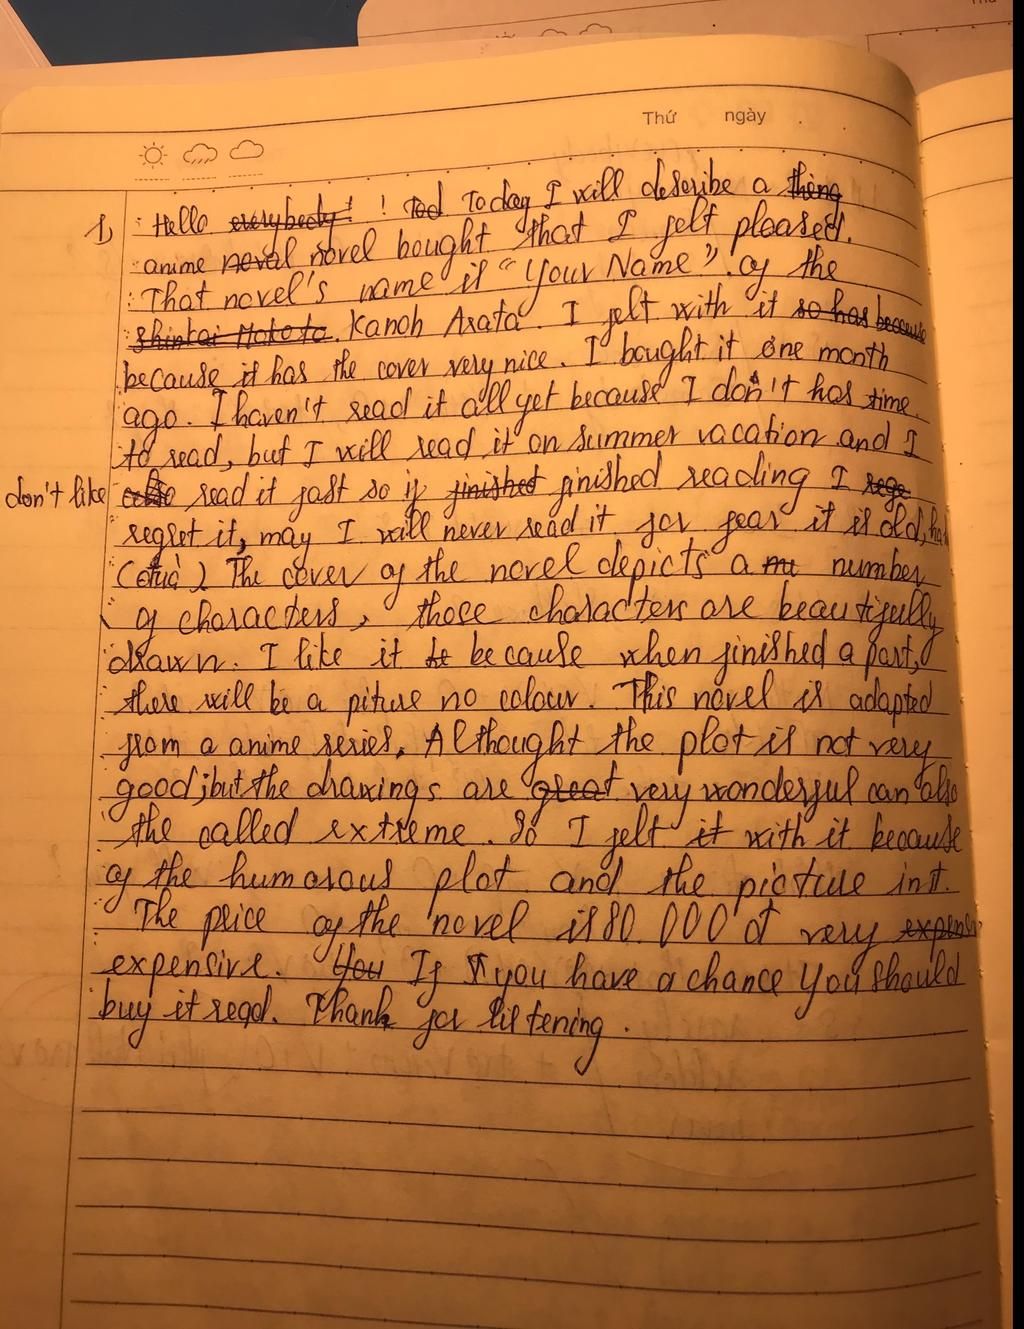 Thứ ngày
1, Hello everybody! ! Tod Today I will describe a thing
anime noval novel bought that I felt pleased.
That novel's name is "Your Name". of the
Shinkai Makoto. Kanoh Arata. I felt with it so has because
because it has the cover very nice. I bought it one month
ago. I haven't read it all yet because I don't has time
to read, but I will read it on summer vacation and I
don't like read it fast so if finished finished reading I rege
regret it, may I will never read it for fear it is old,
(cũ) The cover of the novel depicts a nu number
of characters, those characters are beautifully
drawn. I like it be because when finished a part,
there will be a piture no colour. This novel is adapted
from a anime series. Althought the plot is not very
good; but the drawings are great very wonderful can also
the called extreme. So I felt it with it because
of the humorous plot and the picture in it.
The price of the novel is 80.000 đ very expens
expensive. You If I you have a chance you should
buy it read. Thank for listening.